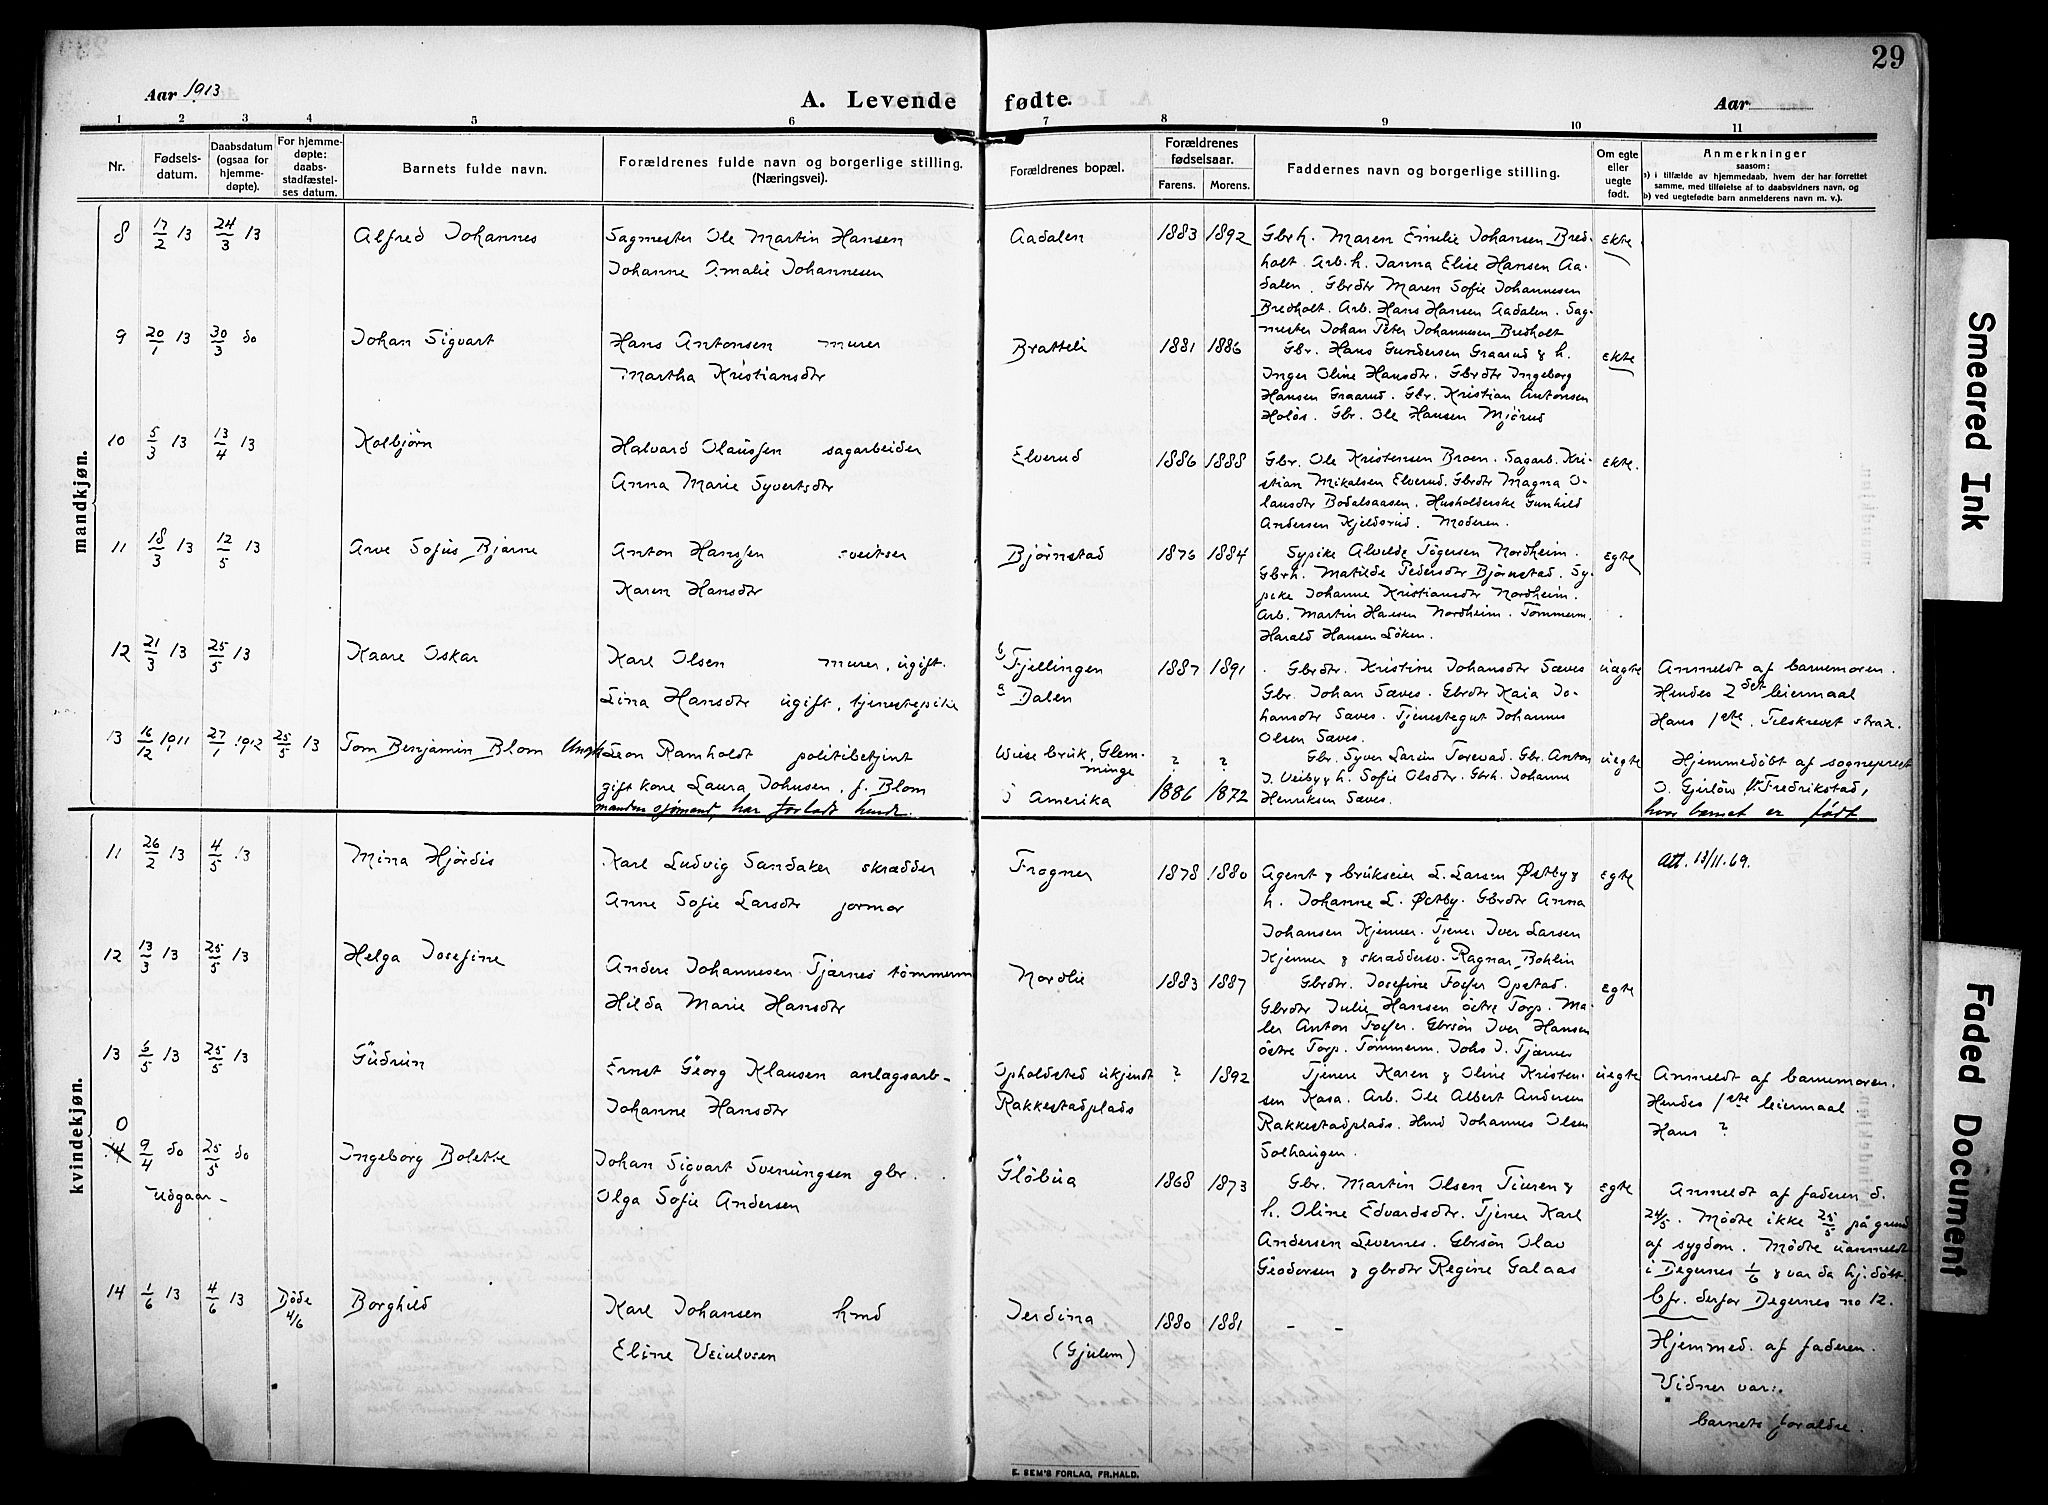 29
Aar 1913
A. Levende fødte.
Aar
1 2 3 4 5 6 7 8 9 10 11
Nr.
Fødsels-
datum.
Daabsdatum
(ogsaa for
hjemme-
døpte).
For hjemme-
døpte:
daabs-
stadfæstel-
ses datum.
Barnets fulde navn.
Forældrenes fulde navn og borgerlige stilling.
(Næringsvei).
Forældrenes bopæl.
Forældrenes
fødselsaar.
Farens. Morens.
Faddernes navn og borgerlige stilling.
Om egte
eller
uegte
født.
Anmerkninger
saasom:
a) i tilfælde av hjemmedaab, hvem der har forrettet
samme, med tilføielse af to daabsvidners navn, og
b) ved uegtefødte barn anmelderens navn m. v.).
mandkjøn.
8 17/2 13 24/3 13 Alfred Johannes
Sagmester Ole Martin Hansen
Johanne Amalie Johannesen
Aadalen 1883 1892
Gbrh. Maren Emelie Johansen Bred-
holt. Arb.h. Janna Elise Hansen Aa-
dalen. Gbrdtr Maren Sofie Johannesen
Bredholt. Arb. Hans Hansen Aadalen. Sag-
mester Johan Peter Johannesen Bredholt
Ekte
9 20/1 13 30/3 do Johan Sigvart
Hans Antonsen murer
Martha Kristiansdtr
Bratteli 1881 1886
Gbr. Hans Gundersen Graarud & h.
Inger Oline Hansdtr. Gbrdtr Ingeborg
Hansen Graarud. Gbr. Kristian Antonsen
Holøs. Gbr. Ole Hansen Mjørud
Ekte
10 5/3 13 13/4 13 Kolbjørn
Halvard Olaussen sagarbeider
Anna Marie Syvertsdtr
Elverud 1886 1888
Gbr. Ole Kristensen Broen. Sagarb. Kri-
stian Mikalsen Elverud. Gbrdtr Magna O-
lausdtr Bodalsaasen. Husholderske Gunhild
Andersen Kjeldsrud. Moderen.
Ekte.
11 18/3 13 12/5 13 Arve Sofus Bjarne
Anton Hanssen sveitser
Karen Hansdtr
Bjørnstad 1876 1884
Sypike Alvilde Tøgersen Nordheim.
Gbrh. Matilde Pedersdtr Bjørnstad. Sy-
pike Johanne Kristiansdtr Nordheim.
Arb. Martin Hansen Nordheim. Tømmerm.
Harald Hansen Løken.
Egte
12 21/3 13 25/5 13 Kaare Oskar
Karl Olsen murer, ugift.
Lina Hansdtr ugift, tjenestepike
b Fjellingen
a Dalen
1887 1891
Gbrdtr. Kristine Johansdtr Sæves
Gbr. Johan Sæves. Gbrdtr Kaia Jo-
hansdtr Sæves. Tjenestegut Johannes
Olsen Sæves.
uegte
Anmeldt af barnemoren.
Hendes 2det leiermaal
Hans 1ste. Tilskrevet strax.
13 16/12 1911 27/1 1912 25/5 13 Tom Benjamin Blom
Leon Ramholdt politibetjent
gift kone Laura Johnsen, f. Blom
manden sjømand, har forladt hende.
Wiese bruk, Glem-
minge
i Amerika
? ?
1886 1872
Gbr. Syver Larsen Torevad. Gbr. Anton
J. Veiby & h. Sofie Olsdtr. Gbrh. Johanne
Henriksen Sæves.
uegte
Hjemmedøbt af sogneprest
J. Gjerløw v. Fredrikstad,
hvor barnet er født.
kvindekjøn.
11 26/2 13 4/5 13 Mina Hjørdis
Karl Ludvig Sandaker skrædder
Anne Sofie Larsdtr jormor
Frogner 1878 1880
Agent & brukseier L. Larsen Østby &
h. Johanne L. Østby. Gbrdtr Anna
Johansen Kjenner. Tjener Iver Larsen
Kjenner & skræddersv. Ragnar Bohlin
Egte
Att. 13/11.69.
12 13/3 13 25/5 13 Helga Josefine
Anders Johannesen Tjærnes tømmerm
Hilda Marie Hansdtr
Nordlie 1883 1887
Gbrdtr. Josefine Fosser Opstad.
Gbrdtr Julie Hansen østre Torp. Ma-
ler Anton Fosser. Gbrsøn Iver Hansen
østre Torp. Tømmerm. Johs J. Tjærnes
Egte
13 6/5 13 25/5 13 Gudrun
Ernst Georg Klausen anlagsarb-
Johanne Hansdtr
Opholdsted ukjendt
Rakkestadplads
? 1892
Tjenere Karen & Oline Kristen-
sen Kasa. Arb. Ole Albert Andersen
Rakkestadplads. Hmd Johannes Olsen
Solhaugen.
uegte
Anmeldt af barnemoren.
Hendes 1ste leiermaal
Hans ?
0
14 9/4 do 25/5 do Ingeborg Bolette
-udgaar-
Johan Sigvart Svenningsen gbr.
Olga Sofie Andersen
Gløbua 1868 1873
Gbr. Martin Olsen Tiuren &
h. Oline Edvardsdtr. Tjener Karl
Andersen Levernes. Gbrsøn Olav
Geodorsen & gbrdtr Regine Galaas
Egte
Anmeldt af faderen d.
24/5. Mødte ikke 25/5 på grund
af sygdom. Mødte uanmeldt
i Degernes 1/6 & var da hj.døbt.
Cfr. derfor Degernes no 12.
14 1/6 13 4/6 13 Døde
4/6
Borghild
Karl Johansen hmd
Eline Veiulvsen
Jerdina
(Gjulem)
1880 1881
- -
Hjemmed. af faderen.
Vidner var:
barnets foraldre.
E. SEM'S FORLAG, FR.HALD.
Smeared Ink
Faded Document